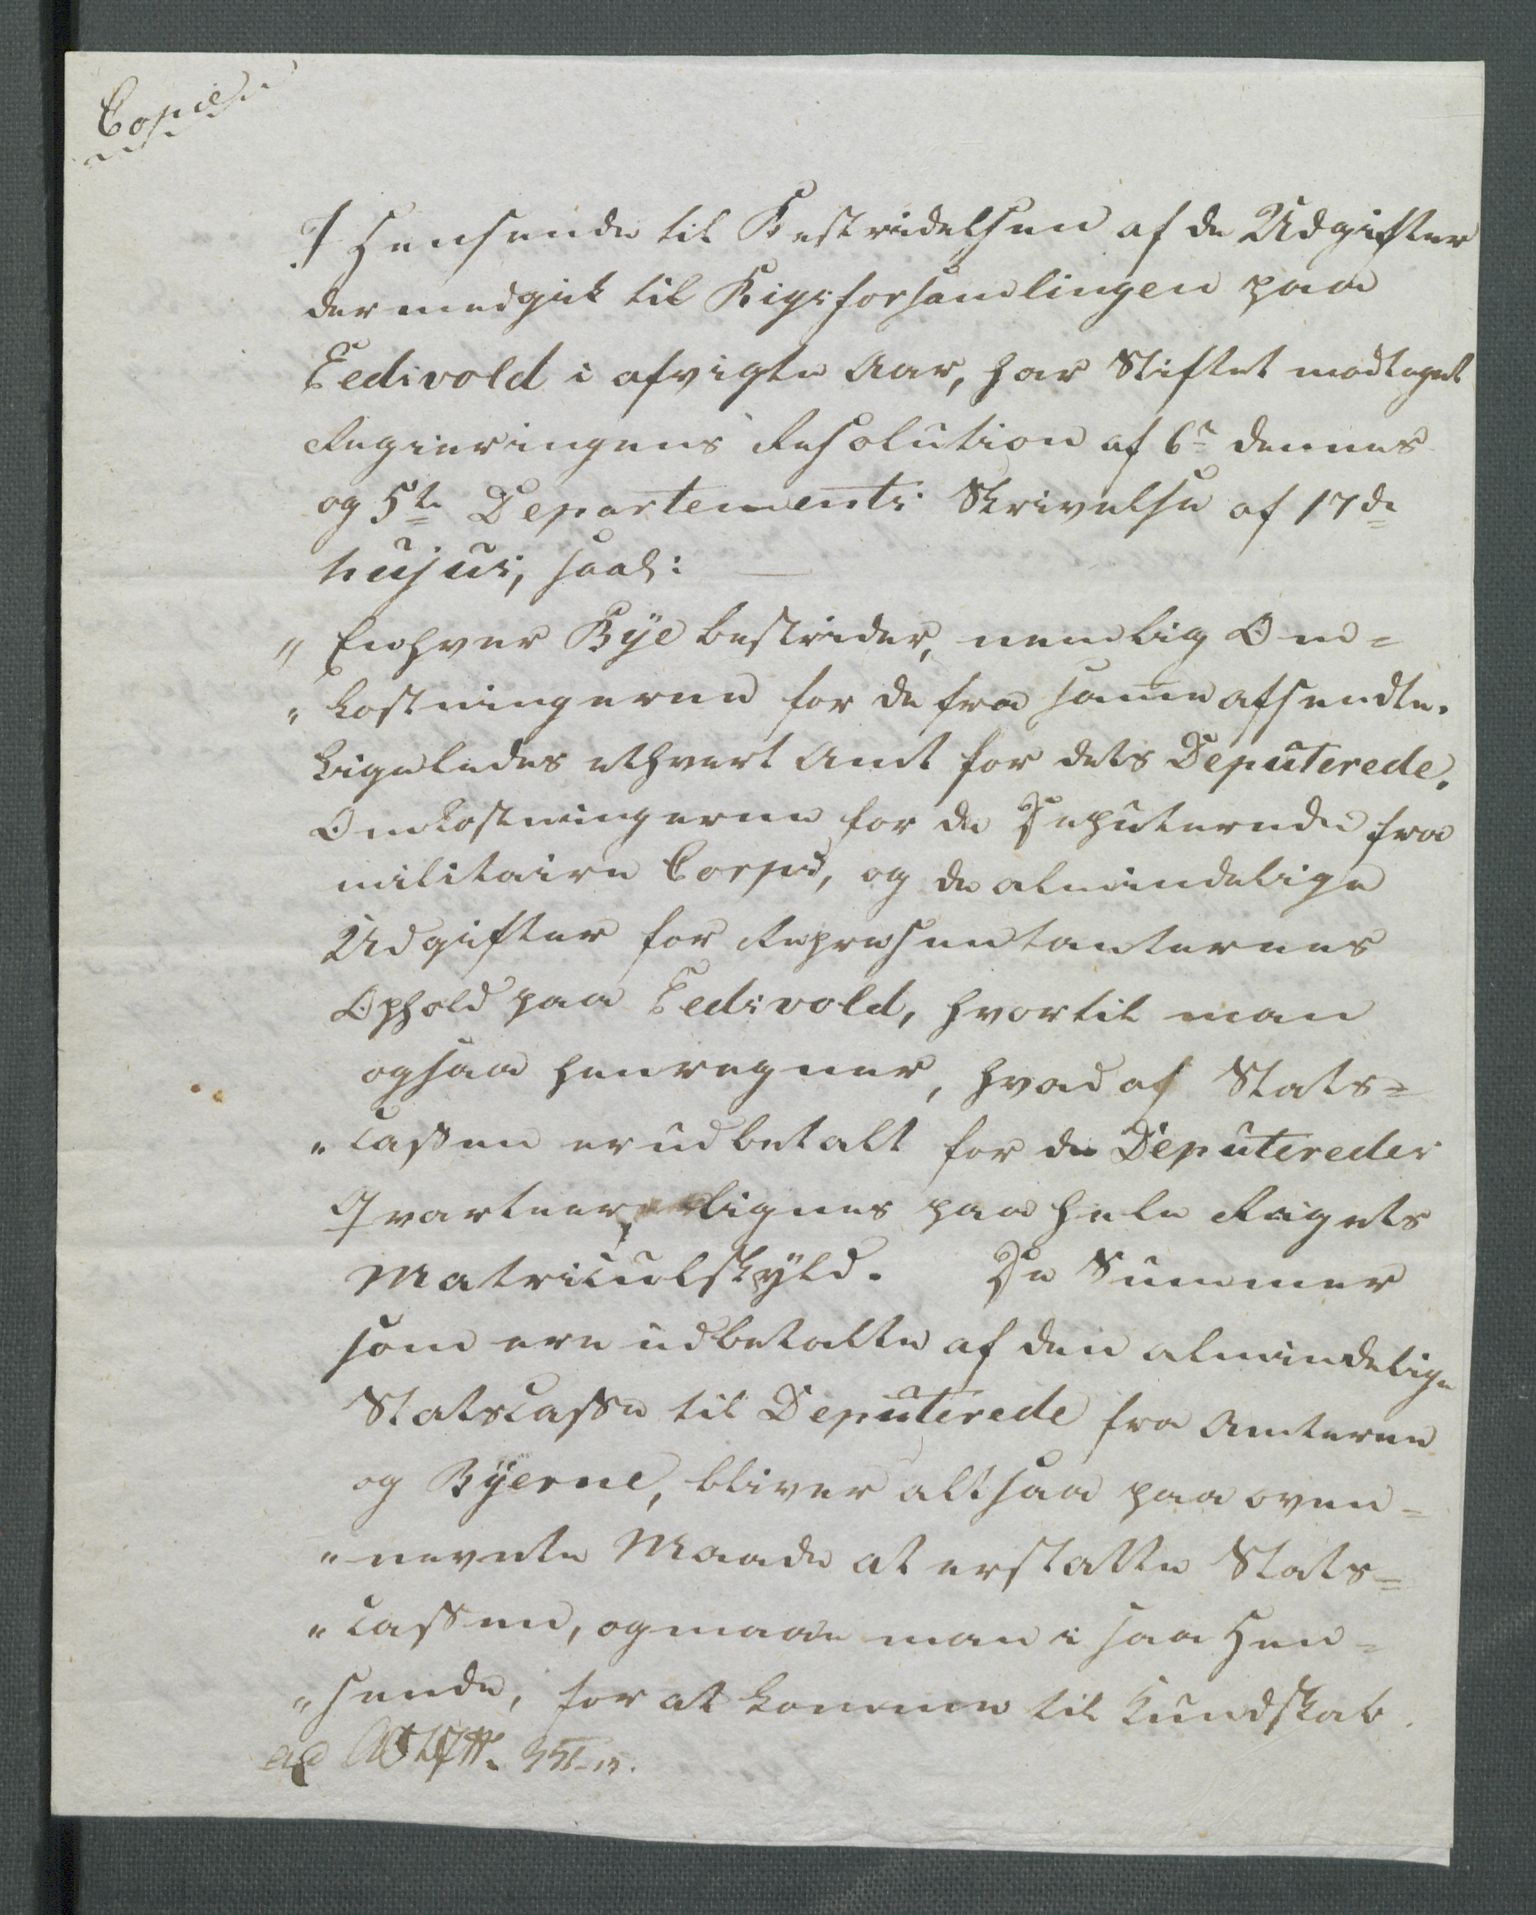 Copie
I Hensende til Bestridelsen af de Udgifter
der medgik til Rigsforsamlingen paa
Eedsvold i afvigte Aar, har Stiftet modtaget
Regieringens Resolution af 6te dennes
og 5te Departements Skrivelse af 17de
hujus, saal:
" Enhver Bÿe bestrider, nemlig Om=
" kostningerne for de fra samme afsendte.
Ligeledes ethvert Amt for dets Deputerede.
Omkostningerne for de Deputerede fra
militaire Corps, og de almindelige
Udgifter for Repræsentanternes
Ophold paa Eedsvold, hvortil man
ogsaa henregner, hvad af Stats=
" Cassen er udbetalt for de Deputeredes
Qvarteer, lignes paa hele Rigets
Matriculskÿld. De Summer
som ere udbetalte af den almindelige
Statscasse til Deputerede fra Amterne
og Bÿerne, bliver altsaa paa oven=
" nevnte Maade at erstatte Stats=
" Cassen, og maae man i saa Hen=
" seende, for at komme til Kundskab
ad